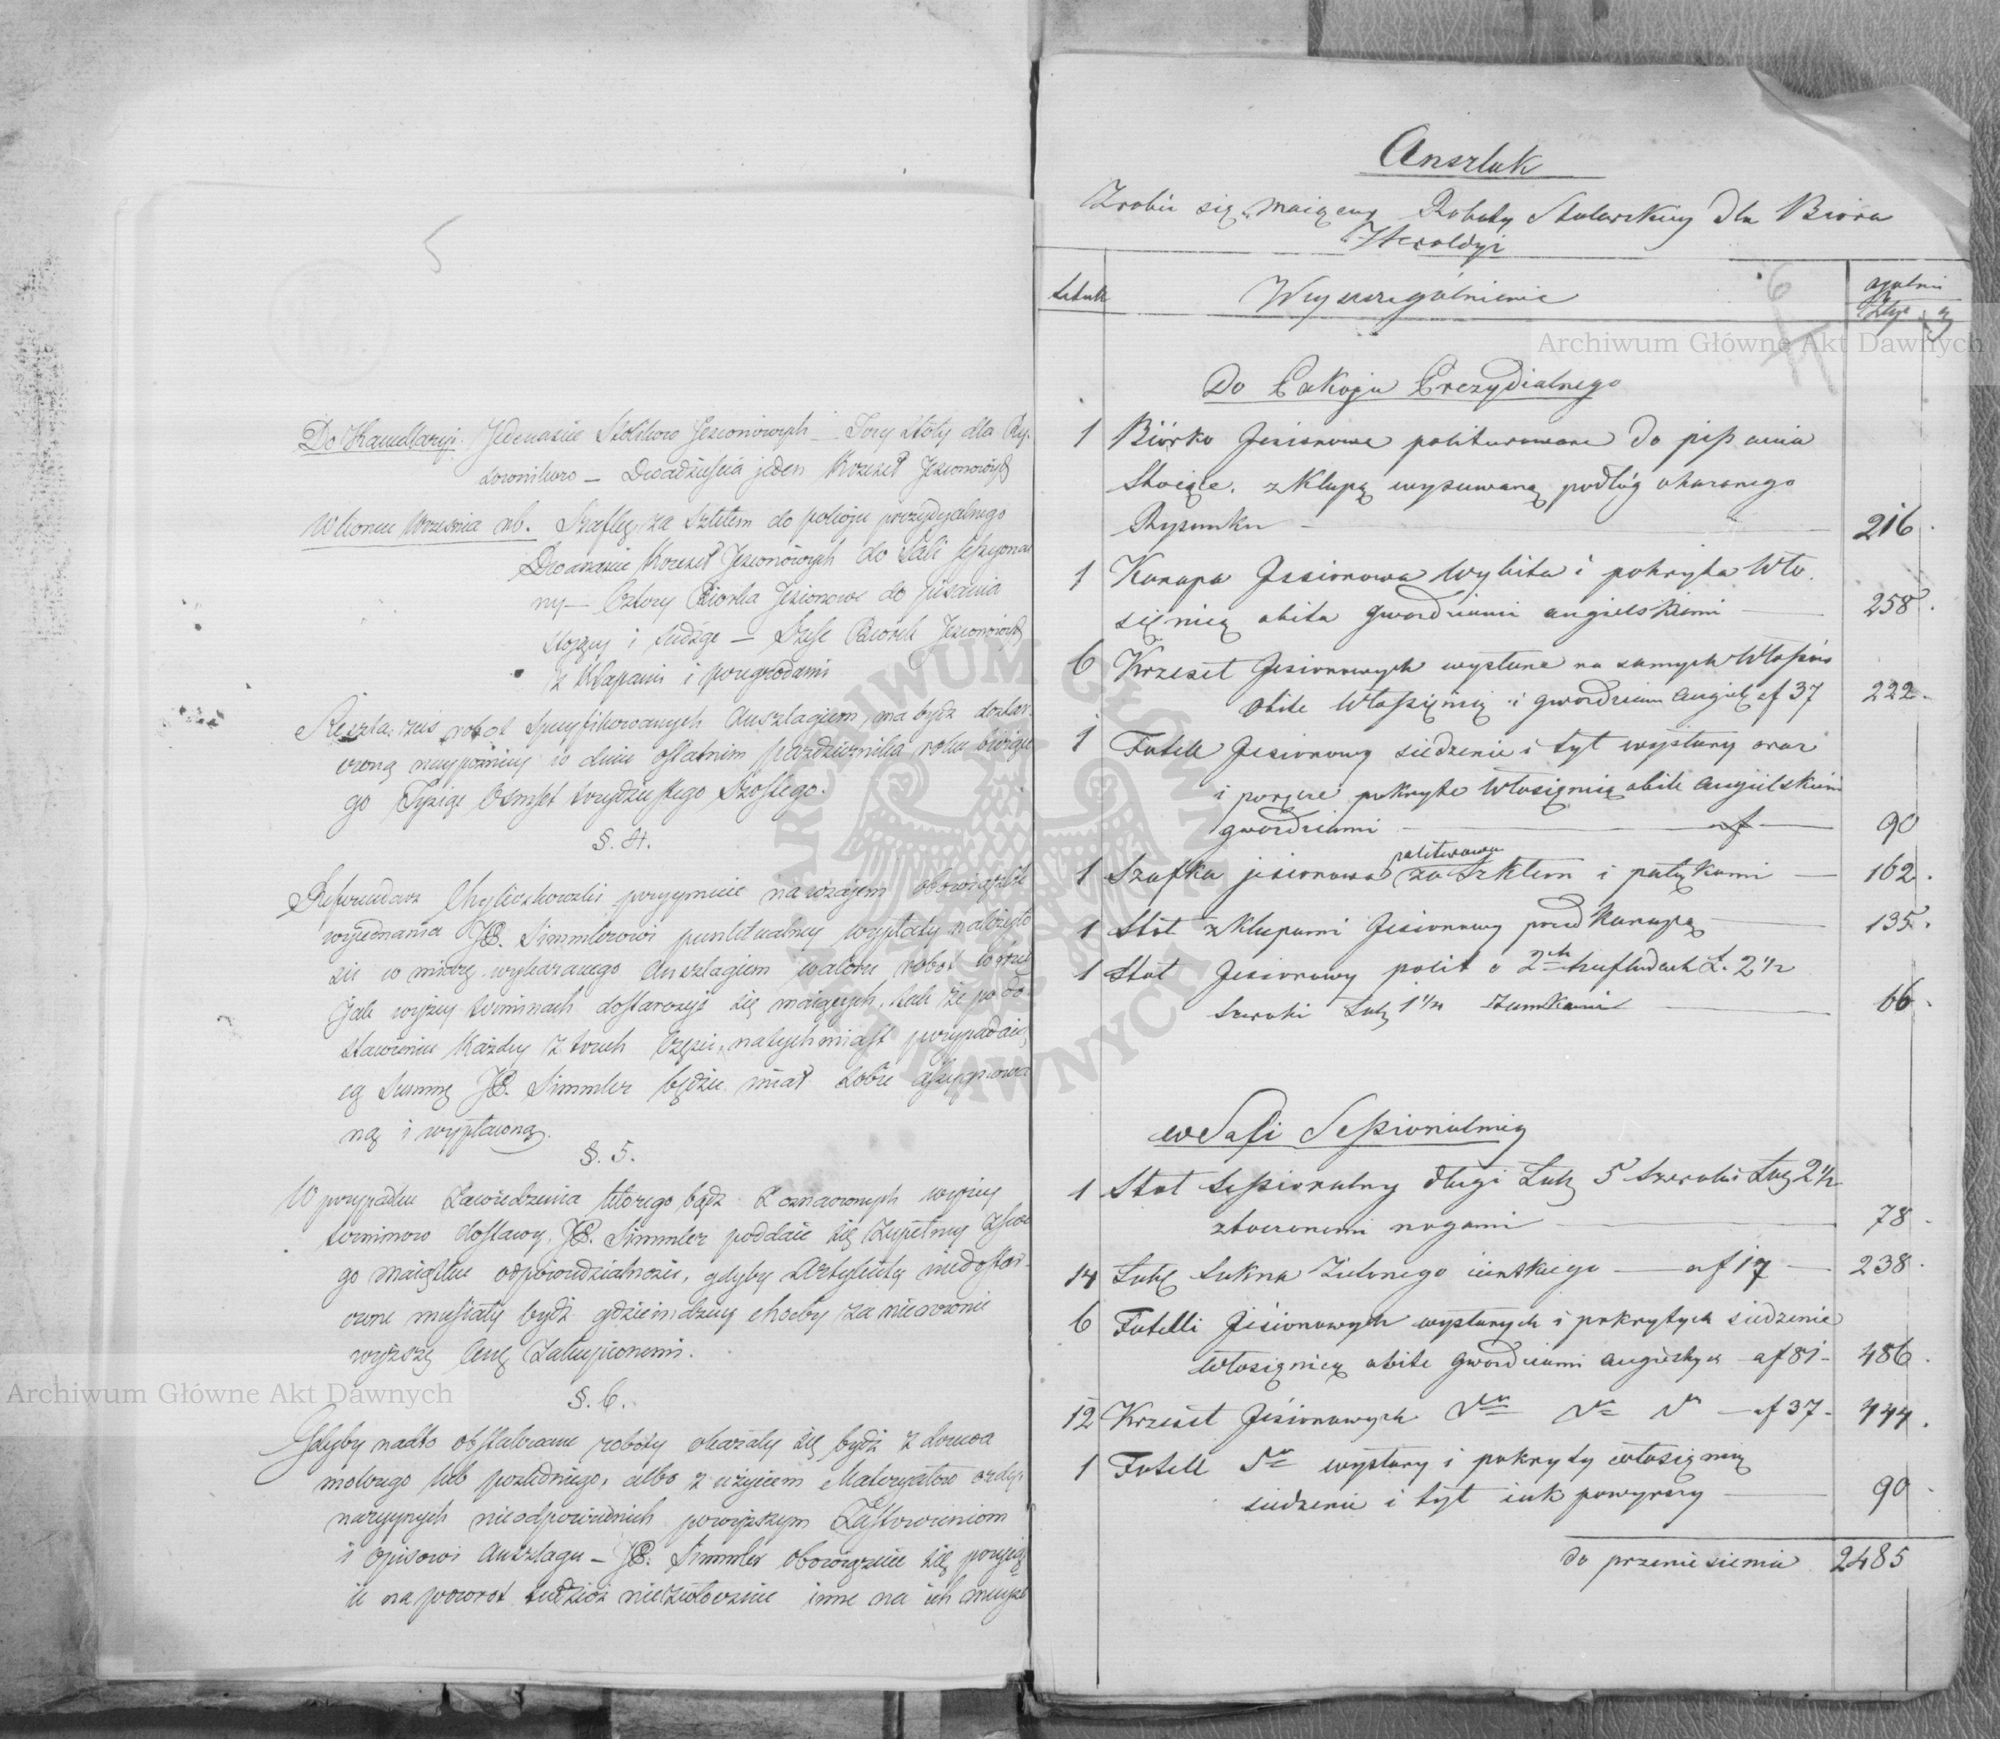 5
Do Kancellaryi. Jedenaście Stolików Jesionowych – Trzy Stoły dla Ry-
sowników – Dwadzieścia jeden Krzeseł Jesionowych
W końcu Września rb. Szafkę za Szkłem do pokoju prezydyalnego
Dwanaście Krzeseł Jesionowych do Sali Sessyonal
ny – Cztery Biorka Jesionowe do pisania
stojący i siedząc – Sześć Biorek Jesionowych
z Klapami i przegrodami
Reszta zaś robot specyfikowanych Anszlagiem, ma bydź dostar-
czoną naypóźniey w dniu ostatnim Października roku bieżące
go Tysiąc Osmset trzydziestego Szóstego.
§. 4.
Referendarz przyymuie nawzajem obowiązek
wyiednania JP. Simmlerowi punktualney wypłaty należyto
ści w miarę wykazanego Anszlagiem waloru robot
Jak wyżey terminach dostarczyć się maiących, tak że po do-
stawieniu każdey z tych części, natychmiast przypadaią
cą Summę JP. Simmler będzie miał sobie assygnowa
ną i wypłaconą.
§. 5.
W przypadku zawiedzenia którego bądź z oznaczonych wyżey
terminow dostawy, JP. Simmler poddaie się zupełney z swe
go maiątku odpowiedzialności, gdyby Artykuły niedostar-
czone musiały bydź gdzieindziey choćby za nierównie
wyższą cenę zakupionemi.
§. 6.
Gdyby nadto obstalowane roboty okazały się bydź z drzewa
mokrego lub poślednego, albo z użyciem Materyałów ordy-
naryynych nieodpowiednich powyższym Zastrzeżeniom
i opisowi Anszlagu – JP. Simmler obowiązuie się przyiąć
ie na powrót tudzież niezwłocznie inne na ich mieysce
Anszlak
Zrobić się maiącey Roboty Stolarskiey dla Biora
Heroldyi
6
Sztuk
Wyszczególnienie
ogulnie
Złtp. g
Do Pokoju Prezydialnego
1 Biórko Jesionowe politurowane do pisania
Stoiące. z Klapą wysuwaną podług okazanego
Rysunku – 216.
1 Kanapa Jesionowa wybita i pokryta Wło-
sięnicą obita gwoździami angielskiemi – 258.
6 Krzeseł Jesionowych wysłane na samych Włosiu
obite Włosięnicą i gwoździam angiel af 37 222.
1 Fotell Jesionowy siedzenie i tył wysłany oraz
i poręcze pokryte Włosięnicą obite angielskiemi
gwoździami – af – 90
1 Szafka jesionowa politurowa za Szkłem i pułkami – 162.
1 Stół z Klapami Jesionowy przed Kanapą – 135.
1 Stół Jesionowy polit o 2ch szufladach Ł. 2 1/2
Szeroki Łok 1 1/4 zamkami – 66.
w Sali Sessionalney
1 Stół Sessionalny długi Łok 5 Szeroki Łok 2 1/2
z toczonemi nogami – 78.
14 Łok Sukna Zielonego cienkiego – af 17 – 238.
6 Fotelli Jesionowych wysłanych i pokrytych siedzenie
Włosięnicą obite gwoździami angielskiem – af 81 – 486.
12 Krzeseł Jesionowych dto dto dto – af 37 – 444.
1 Fotell dto wysłany i pokryty włosięnicą
siedzenie i tył iak powyższy – 90.
do przeniesienia 2485
Archiwum Główne Akt Dawnych
Archiwum Główne Akt Dawnych
ARCHIWUM GŁÓWNE AKT DAWNYCH